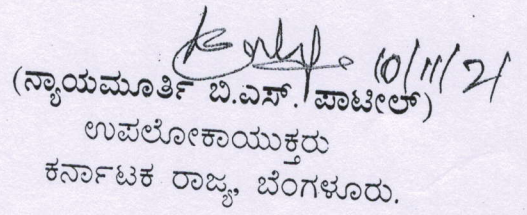 10/11/21
(ನ್ಯಾಯಮೂರ್ತಿ ಬಿ.ಎಸ್. ಪಾಟೀಲ್)
ಉಪಲೋಕಾಯುಕ್ತರು
ಕರ್ನಾಟಕ ರಾಜ್ಯ, ಬೆಂಗಳೂರು.